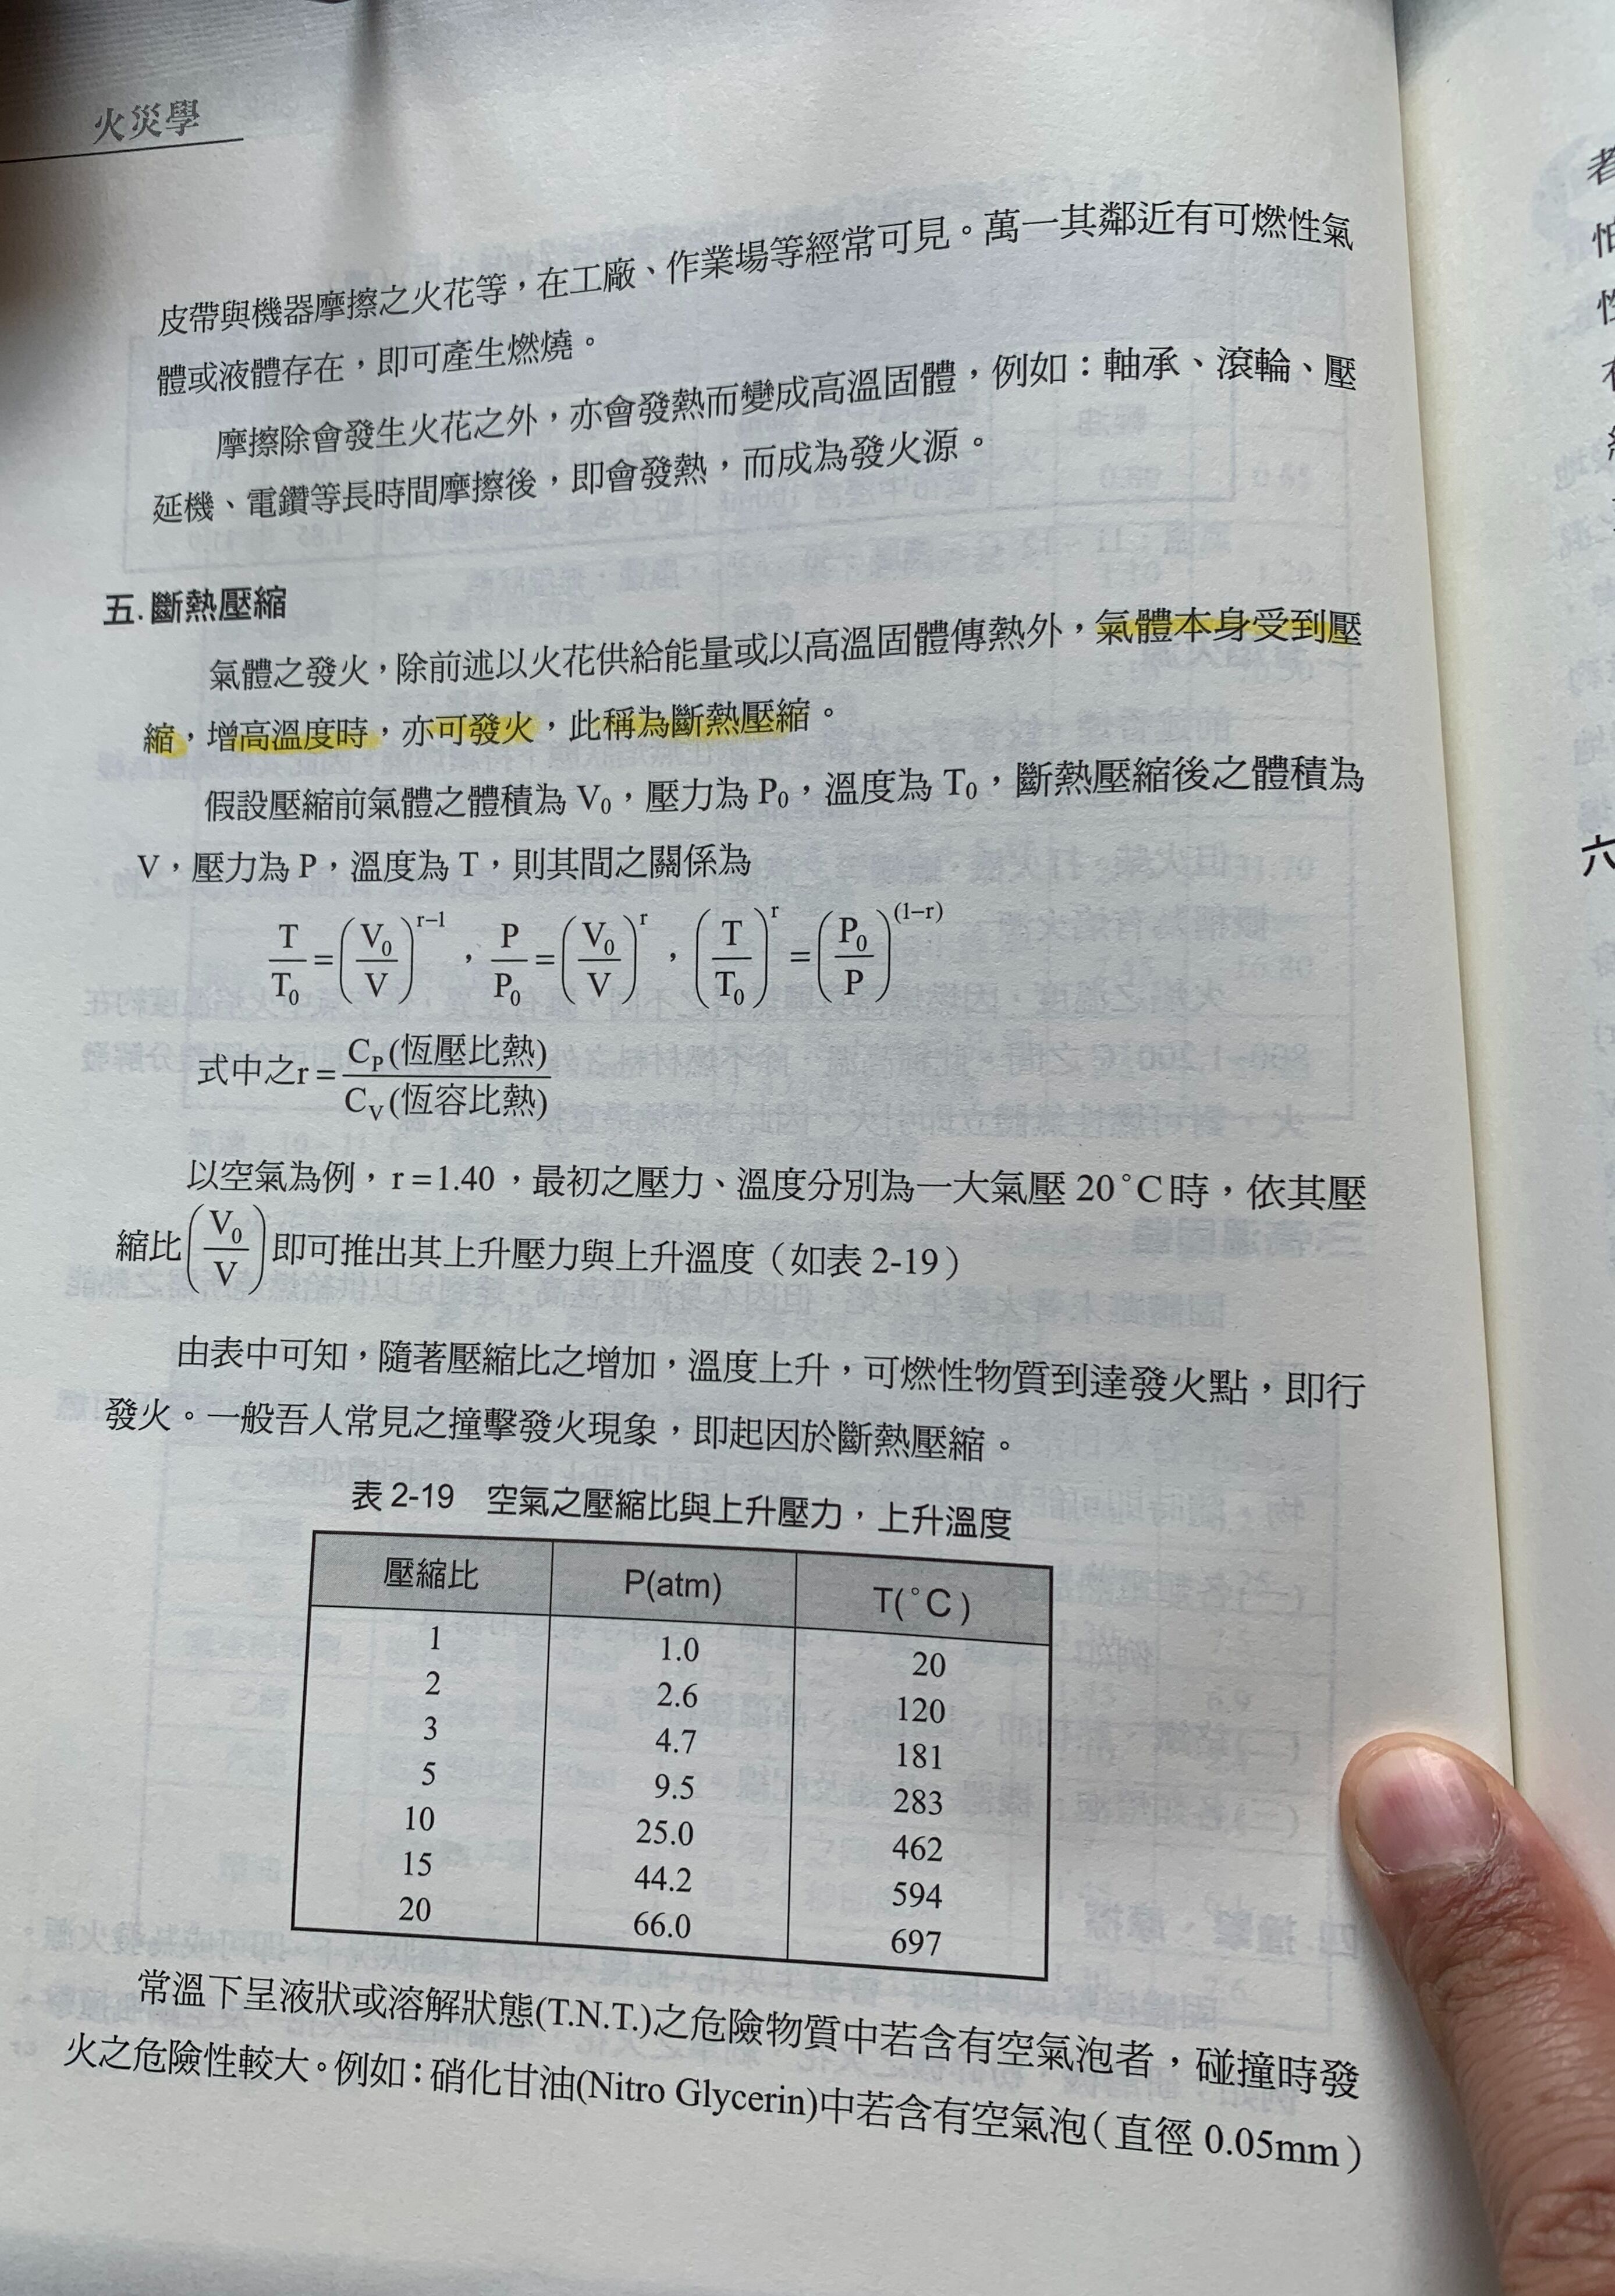 火災學
皮帶與機器摩擦之火花等，在工廠、作業場等經常可見。萬一其鄰近有可燃性氣
體或液體存在，即可產生燃燒。
摩擦除會發生火花之外，亦會發熱而變成高溫固體，例如：軸承、滾輪、壓
延機、電鑽等長時間摩擦後，即會發熱，而成為發火源。
五. 斷熱壓縮
氣體之發火，除前述以火花供給能量或以高溫固體傳熱外，氣體本身受到壓
縮，增高溫度時，亦可發火，此稱為斷熱壓縮。
假設壓縮前氣體之體積為 V₀，壓力為 P₀，溫度為 T₀，斷熱壓縮後之體積為
V，壓力為 P，溫度為 T，則其間之關係為
T/T₀ = (V₀/V)^(r−1)，P/P₀ = (V₀/V)^r，(T/T₀)^r = (P₀/P)^(1−r)
式中之r = C_P(恆壓比熱)/C_V(恆容比熱)
以空氣為例，r = 1.40，最初之壓力、溫度分別為一大氣壓 20°C時，依其壓
縮比(V₀/V)即可推出其上升壓力與上升溫度（如表 2-19）
由表中可知，隨著壓縮比之增加，溫度上升，可燃性物質到達發火點，即行
發火。一般吾人常見之撞擊發火現象，即起因於斷熱壓縮。
表 2-19 空氣之壓縮比與上升壓力，上升溫度
壓縮比 P(atm) T(°C)
1 1.0 20
2 2.6 120
3 4.7 181
5 9.5 283
10 25.0 462
15 44.2 594
20 66.0 697
常溫下呈液狀或溶解狀態(T.N.T.)之危險物質中若含有空氣泡者，碰撞時發
火之危險性較大。例如：硝化甘油(Nitro Glycerin)中若含有空氣泡（直徑 0.05mm）
者
怕
性
六